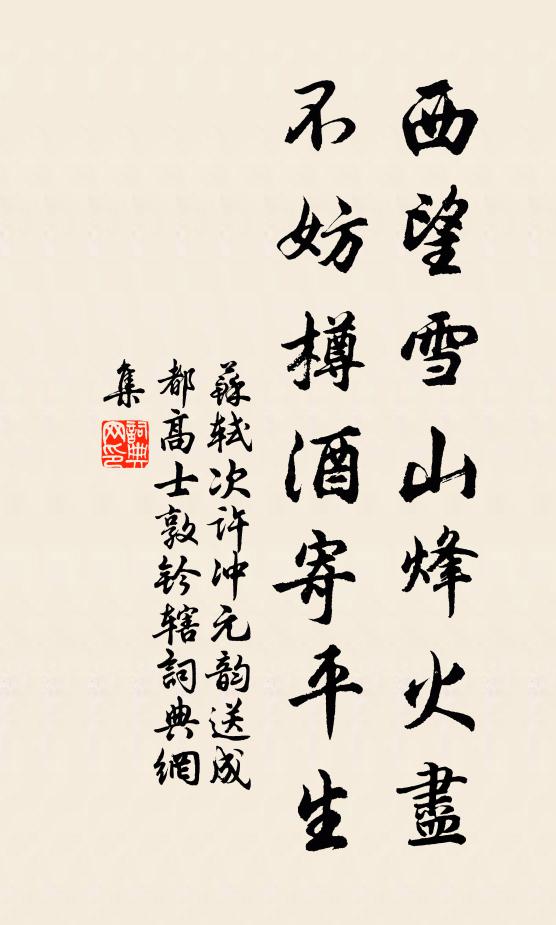 西望雪山烽火盡
不妨樽酒寄平生
蘇軾次許沖元韵送成
都高士敦鈐轄詞典網
集
詞典
网印